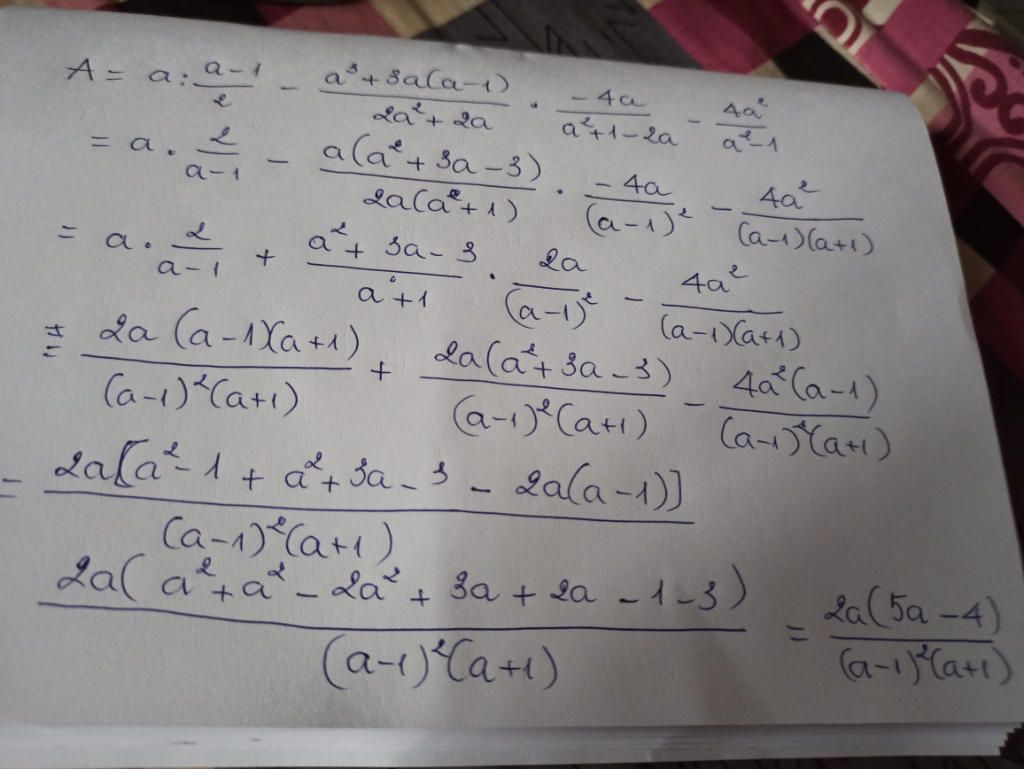 A = a : \frac{a-1}{2} - \frac{a^3+3a(a-1)}{2a^2+2a} \cdot \frac{-4a}{a^2+1-2a} - \frac{4a^2}{a^2-1}
= a \cdot \frac{2}{a-1} - \frac{a(a^2+3a-3)}{2a(a^2+1)} \cdot \frac{-4a}{(a-1)^2} - \frac{4a^2}{(a-1)(a+1)}
= a \cdot \frac{2}{a-1} + \frac{a^2+3a-3}{a+1} \cdot \frac{2a}{(a-1)^2} - \frac{4a^2}{(a-1)(a+1)}
= \frac{2a(a-1)(a+1)}{(a-1)^2(a+1)} + \frac{2a(a^2+3a-3)}{(a-1)^2(a+1)} - \frac{4a^2(a-1)}{(a-1)^2(a+1)}
= \frac{2a[a^2-1+a^2+3a-3-2a(a-1)]}{(a-1)^2(a+1)}
\frac{2a(a^2+a^2-2a^2+3a+2a-1-3)}{(a-1)^2(a+1)} = \frac{2a(5a-4)}{(a-1)^2(a+1)}